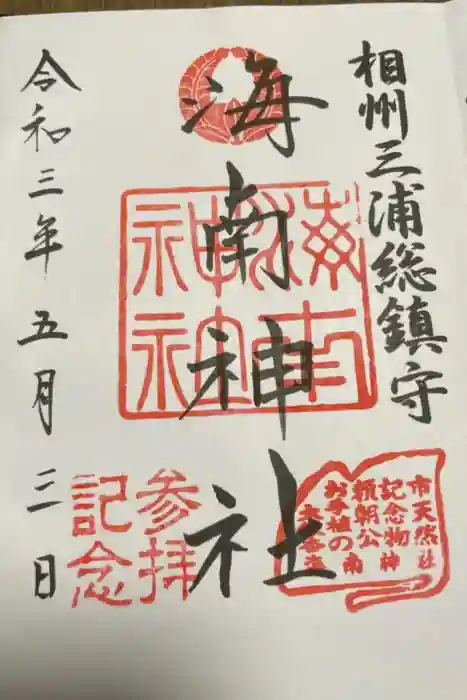 相州三浦総鎮守
海南神社
令和三年五月三日
参拝
記念
市天然
記念物神社
頼朝公
お手植の南